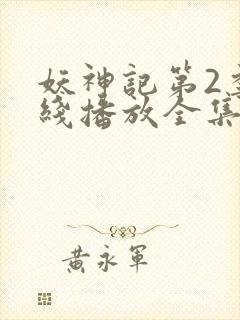 妖神記第2
綫播放全集
黃永軍